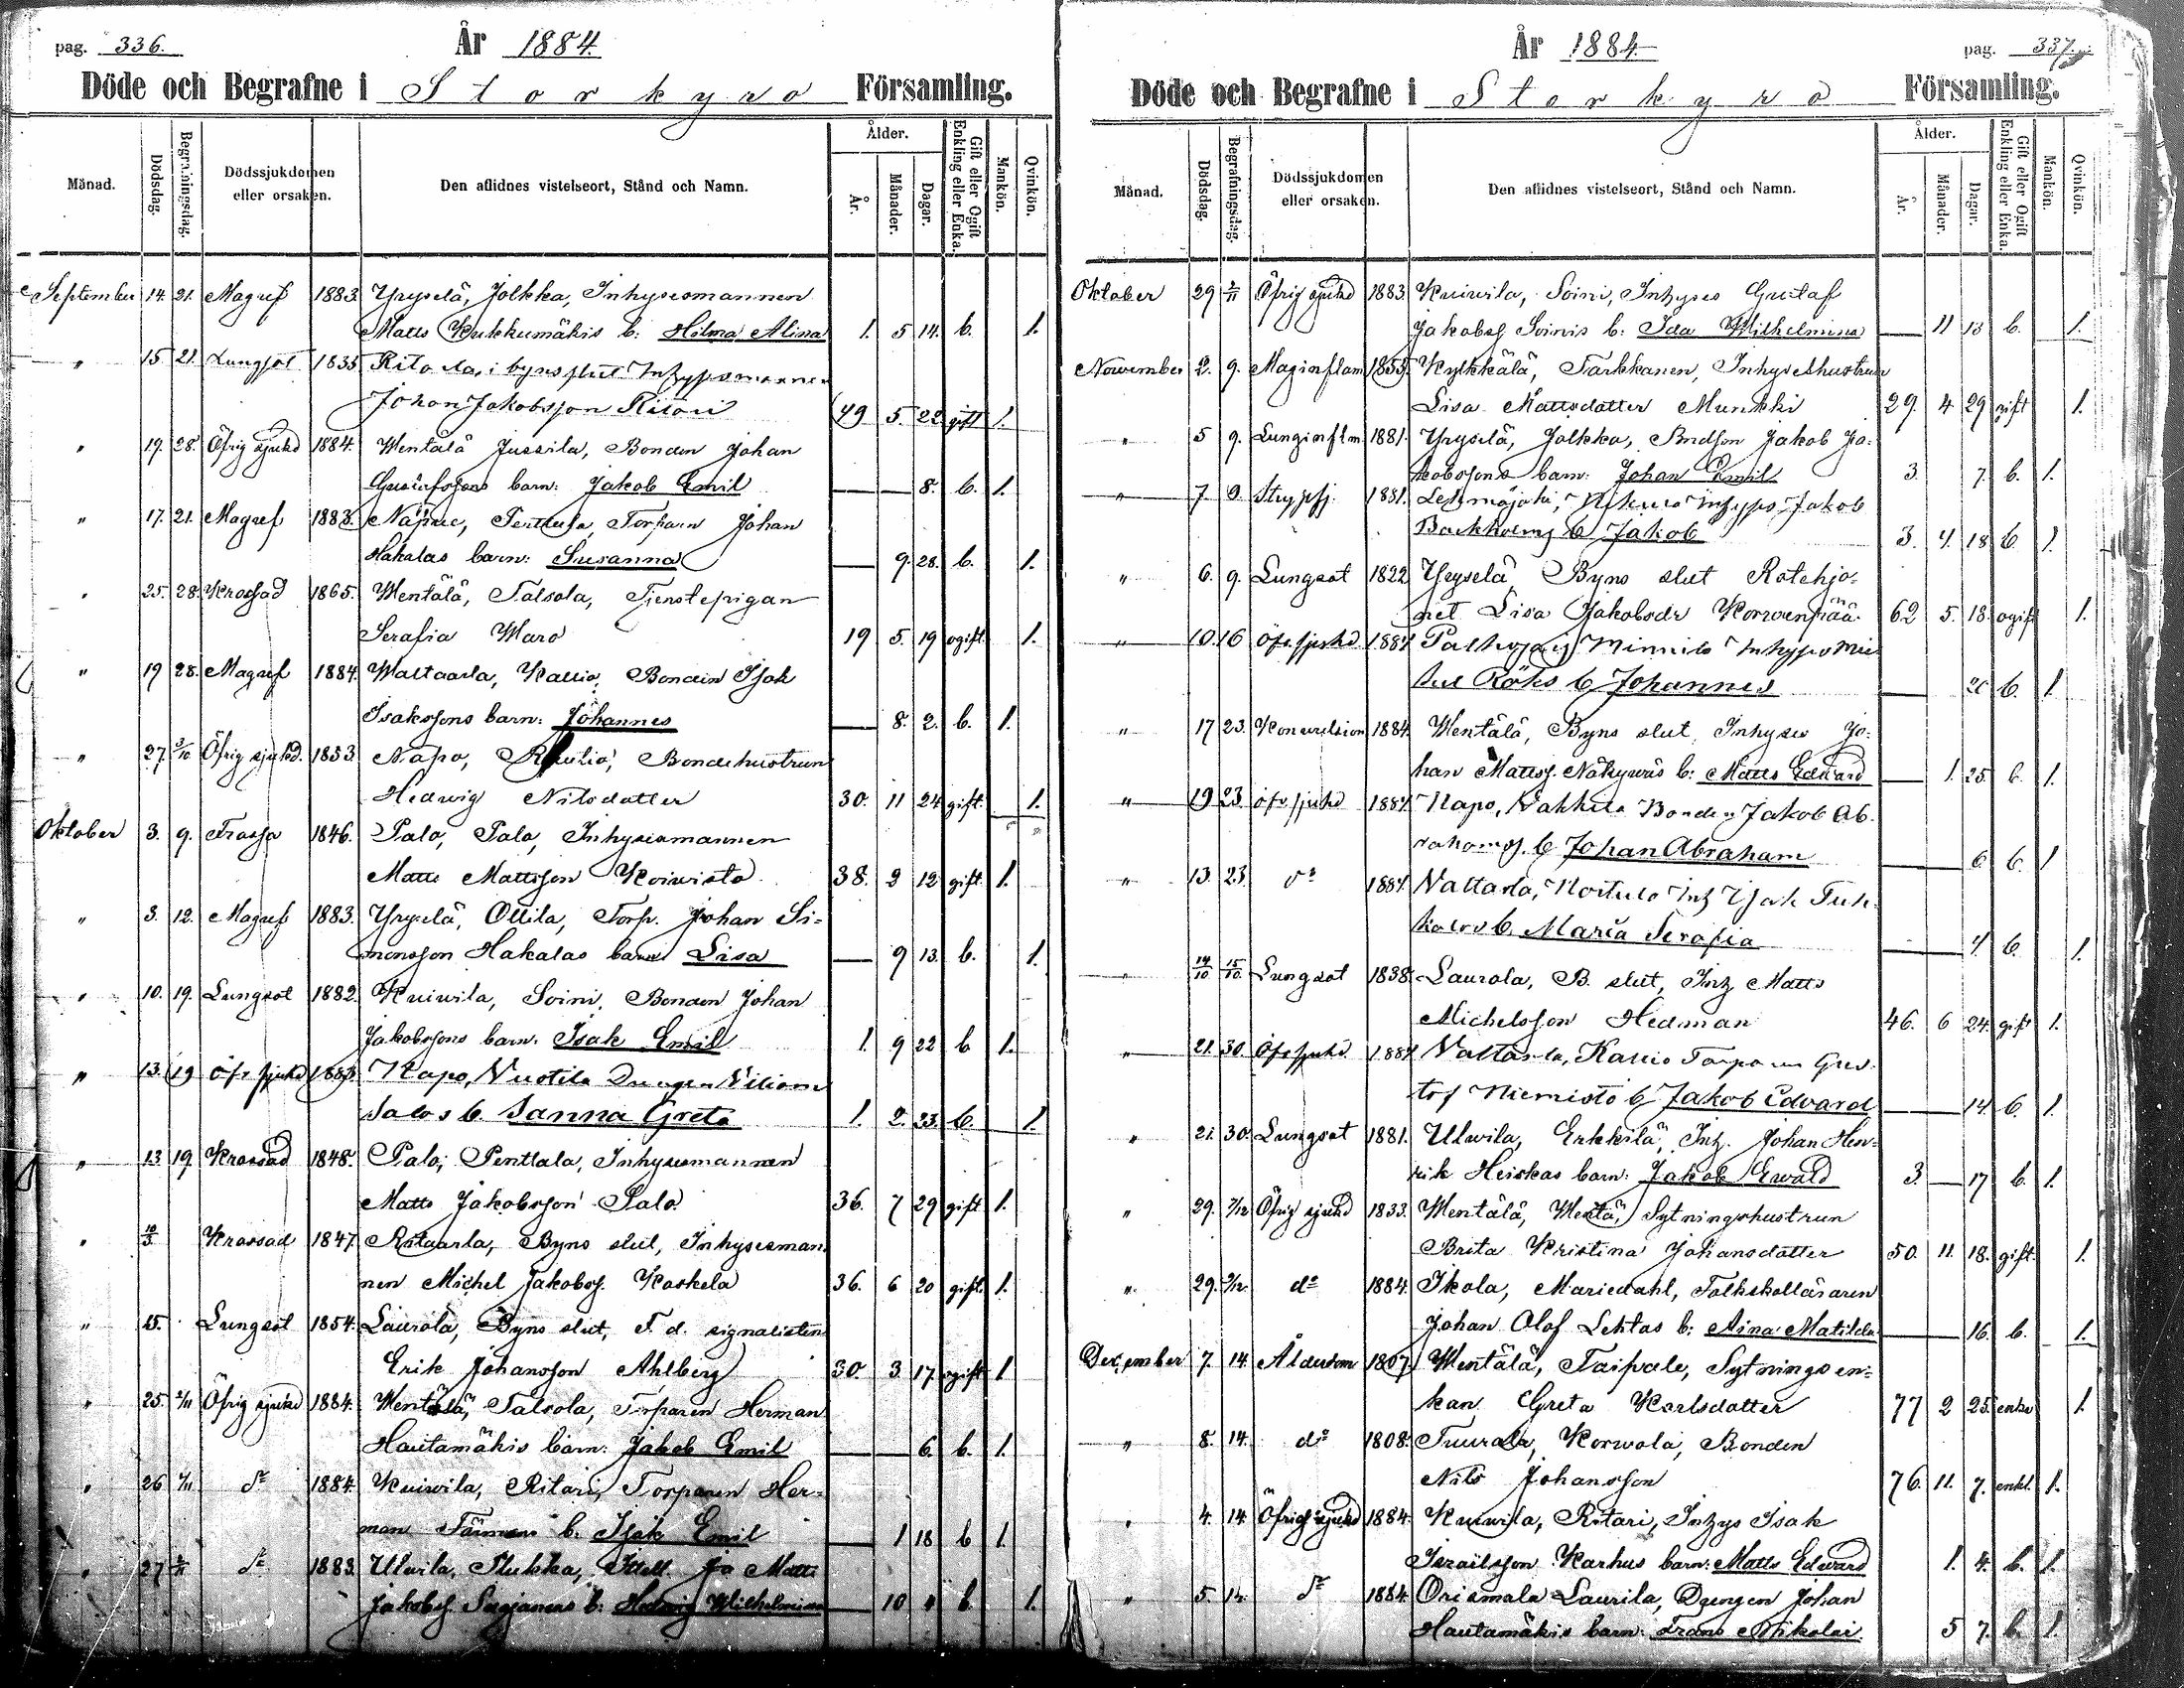 pag. 336.
År 1884.
Döde och Begrafne i Storkyro Församling.
Månad.
Dödsdag.
Begrafningsdag.
Dödssjukdomen
eller orsaken.
Den aflidnes vistelseort, Stånd och Namn.
Ålder.
År.
Månader.
Dagar.
Gift eller Ogift
Enkling eller Enka.
Mankön.
Qvinkön.
September 14. 21. Magref 1883. Yryselä, Jolkka, Inhysesmannen
Matts Kukkumäkis b: Hilma Alina 1. 5 14. b. 1.
" 15 21. Lungsot 1835 Ritola, i byns slut Inhysesmannen
Johan Jakobsson Ritari 49 5. 22 gift 1.
" 19. 28. Öfrig sjukd 1884. Wentälä Jussila, Bonden Johan
Gustafssons barn: Jakob Emil 8. b. 1.
" 17. 21. Magref 1883. Näpue, Perttula, Torparn Johan
Hakalas barn: Susanna 9. 28. b. 1.
" 25. 28. Krossad 1865. Wentälä, Talsola, Tjenstepigan
Serafia Waro 19 5. 19 ogift. 1.
" 19 28. Magref 1884. Waltaarla, Kallio, Bonden Isak
Isakssons barn: Johannes 8. 2. b. 1.
" 27. 3/10 Öfrig sjukd. 1853. Napo, Bondehustrun
Hedwig Nilsdatter 30. 11 24 gift. 1.
Oktober 3. 9. Frassa 1846. Palo, Palo, Inhysesmannen
Matts Mattsson Koiwisto 38. 2 12 gift. 1.
" 3. 12. Magref 1883. Yryselä, Ollila, Torp. Johan Si-
monsson Hakalas barn Lisa 9 13. b. 1.
" 10. 19. Lungsot 1882. Kuiwila, Soini, Bonden Johan
Jakobssons barn. Isak Emil 1. 9 22 b 1.
" 13. 19 Öfr sjukd 1883. Napo, Vuotila Drengen Viliam
Salos b. Sanna Greta 1. 2. 23. b. 1.
" 13 19. Krossad 1848. Palo, Penttala, Inhysesmannen
Matts Jakobsson Salo. 36. 7 29 gift 1.
" 10/3 Krossad 1847. Ritaarla, Byns slut, Inhysesman-
nen Michel Jakobss. Koskela 36. 6 20 gift. 1.
" 15. Lungsot 1854. Laurola, Byns slut, F. d. signalisten
Erik Johansson Ahlberg 30. 3 17 ogift 1
" 25. 2/11 Öfrig sjukd 1884. Wentälä, Talsola, Torparen Herman
Hautamäkis barn: Jakob Emil 6. b. 1.
" 26 2/11 d:o 1884. Kuiwila, Ritari, Torparen Her-
man b. Isak Emil 1 18 b 1.
" 27 2/11 d:o 1883. Ulwila, Matts
Jakobss. b: Hedwig Wilhelmina 10 b. 1.
pag. 337.
År 1884.
Döde och Begrafne i Storkyro Församling.
Månad.
Dödsdag.
Begrafningsdag.
Dödssjukdomen
eller orsaken.
Den aflidnes vistelseort, Stånd och Namn.
Ålder.
År.
Månader.
Dagar.
Gift eller Ogift
Enkling eller Enka.
Mankön.
Qvinkön.
Oktober 29 2/11 Öfrig sjukd 1883. Kuiwila, Soini, Inhyses Gustaf
Jakobss Soinis b: Ida Wilhelmina 11 13 b. 1.
November 2. 9. Maginflam 1855. Kylkkälä, Tarkkanen, Inhyseshustrun
Lisa Mattsdatter Munkki 29. 4 29 gift 1.
" 5 9. Lunginflm 1881. Yryselä, Jolkka, Bndson Jakob Ja-
kobssons barn: Johan Emil 3. 7. b. 1.
" 7 9. Strypsj. 1881. Lehmäjoki, Inhyses Jakob
Backholms b Jakob 3. 4. 18 b. 1.
" 6. 9. Lungsot 1822 Yryselä, Byns slut Rotehjo-
net Lisa Jakobsdr Korvenpää 62 5. 18. ogift 1.
" 10. 16 Öfr. sjukd. 1884 Palhojais Minnilä Inhyses Mic
hel Röks b Johannes 26 b. 1.
" 17 23. Konvulsion 1884. Wentälä, Byns slut, Inhyses Jo-
han Mattss. Näkywäs b: Matts Edward 1. 25. b. 1.
" 19 23 öfr sjukd 1884. Napo, Bonden Jakob Ab-
rahamss. b Johan Abraham 6 b. 1
" 13. 23. d:o 1884. Valtarla, Inh Isak
b. Maria Serafia 4 b. 1.
" 14/10 15/10. Lungsot 1838. Laurola, B. slut, Inh Matts
Michelsson Hedman 46. 6 24. gift 1.
" 21. 30 Öfr sjukd 1884. Valtarla, Kallio Torparen Gus-
taf Niemistö b Jakob Edvard 14 b. 1.
" 21. 30. Lungsot 1881. Ulwila, Erkkilä, Inh. Johan Hen-
rik Heiskas barn: Jakob Ewald 3. 17 b. 1.
" 29. 7/12 Öfrig sjukd 1833. Wentälä, Wentä, Sytningshustrun
Brita Kristina Johansdatter 50. 11. 18. gift. 1.
" 29. 7/12. d:o 1884. Ikola, Mariedahl, Folkskolläraren
Johan Olof Lehtos b: Aina Matilda 16. b. 1.
December 7. 14. Ålderdom 1807. Wentälä, Taipale, Sytningsen-
kan Greta Karlsdatter 77 2 25. enka 1.
" 8. 14. d:o 1808. Tuurala, Korwola, Bonden
Nils Johansson 76. 11. 7. enkl. 1.
" 4. 14 Öfrig sjukd 1884. Kuiwila, Ritari, Inhys Isak
Israilsson Karhus barn: Matts Edward 1. 4. b. 1.
" 5. 14. d:o 1884. Orismala Laurila, Drengen Johan
Hautamäkis barn: Frans Nikolai. 5 7. b. 1.